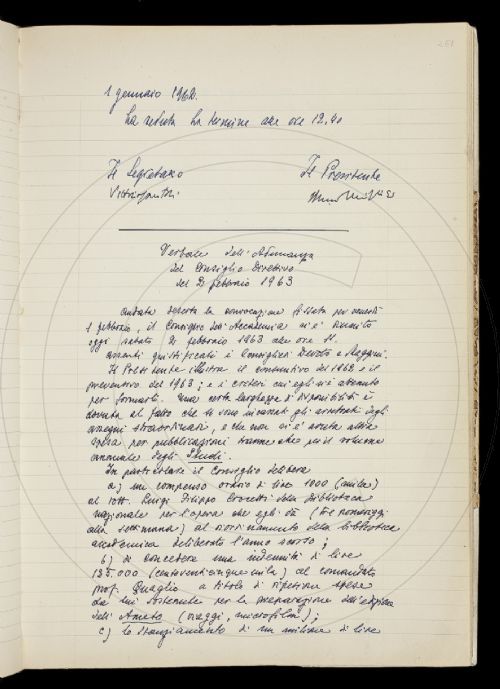 251
1 gennaio 1962.
La seduta ha termine alle ore 12,40
Il Segretario
Il Presidente
Verbale dell'Adunanza
del Consiglio Direttivo
del 2 febbraio 1963
Andata deserta la convocazione fissata per venerdì
1 febbraio, il Consiglio dell'Accademia si è riunito
oggi sabato 2 febbraio 1963 alle ore 11.
assenti giustificati i Consiglieri Devoto e Maggini.
Il Presidente illustra il consuntivo del 1962 e il
preventivo del 1963; e i criteri cui egli si è attenuto
per formarli. Una certa larghezza di disponibilità è
dovuta al fatto che si sono incassati gli arretrati degli
assegni straordinari, e che non si è avuta altra
spesa per pubblicazioni tranne che per il volume
annuale degli Studi.
In particolare il Consiglio delibera
a) un compenso orario di lire 1000 (mille)
al dott. Luigi Filippo della Biblioteca
nazionale per l'opera che egli dà (tre pomeriggi
alla settimana) al riordinamento della biblioteca
accademica deliberato l'anno scorso;
b) di concedere una indennità di lire
125.000 (centoventicinquemila) al comandato
prof. Quaglio a titolo di ripetizione spese
da lui sostenute per la preparazione dell'edizione
dell'Ameto (viaggi, microfilm);
c) lo stanziamento di un milione di lire